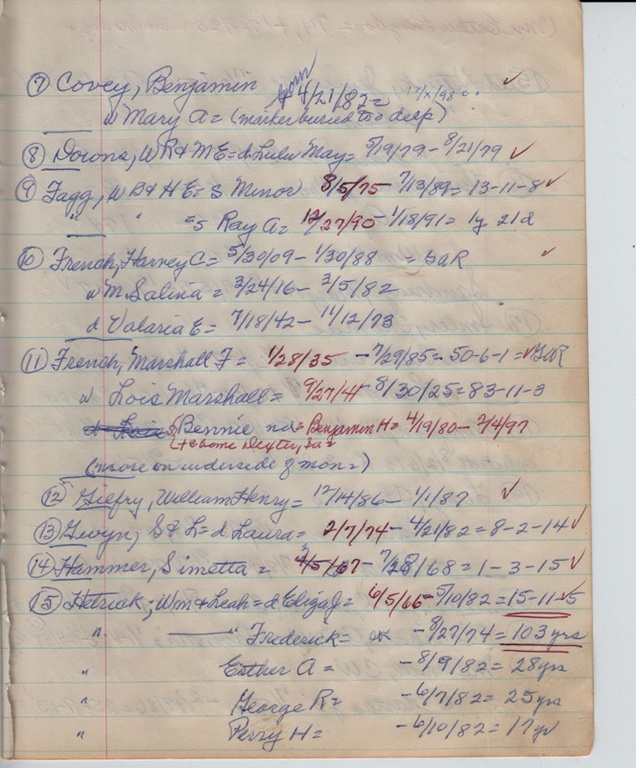 ⑦ Covey, Benjamin born 4/21/82=
w Mary A= (marker buried too deep)
⑧ Downs, W R & M E= d Lulu May= 5/19/79 - 8/21/79 ✓
⑨ Fagg, W B & H E= s Minor 8/5/75 - 7/13/89= 13-11-8 ✓
" " =s Ray A= 12/27/90 - 1/18/91= 1y 21d
⑩ French, Harvey C= 5/30/09 - 1/30/88 = GaR ✓
w M. Salina = 3/24/16 - 3/5/82
d Valaria E= 7/18/42 - 11/12/73
⑪ French, Marshall F= 1/28/35 - 7/29/85= 50-6-1= ✓GaR
w Lois Marshall= 9/27/41 - 8/30/25= 83-11-3
s Bennie nd= Benjamin H= 4/19/80 - 2/4/97
Dexter, Ia=
(more on underside of mon=)
⑫ Gilfry, William Henry= 12/14/86 - 1/1/87 ✓
⑬ Gwyn, S & L= d Laura= 2/7/74 - 4/21/82= 8-2-14 ✓
⑭ Hammer, Simetta = 4/5/67 - 7/28/68= 1-3-15 ✓
⑮ Hetrick; Wm & Leah= d Eliza J= 6/5/66 - 5/10/82= 15-11-5 ✓
" " Frederick= - 8/27/74= 103 yrs
" Esther A= - 8/9/82= 28yrs
" George R= - 6/7/82= 25yrs
" Perry H= - 6/10/82= 17yr